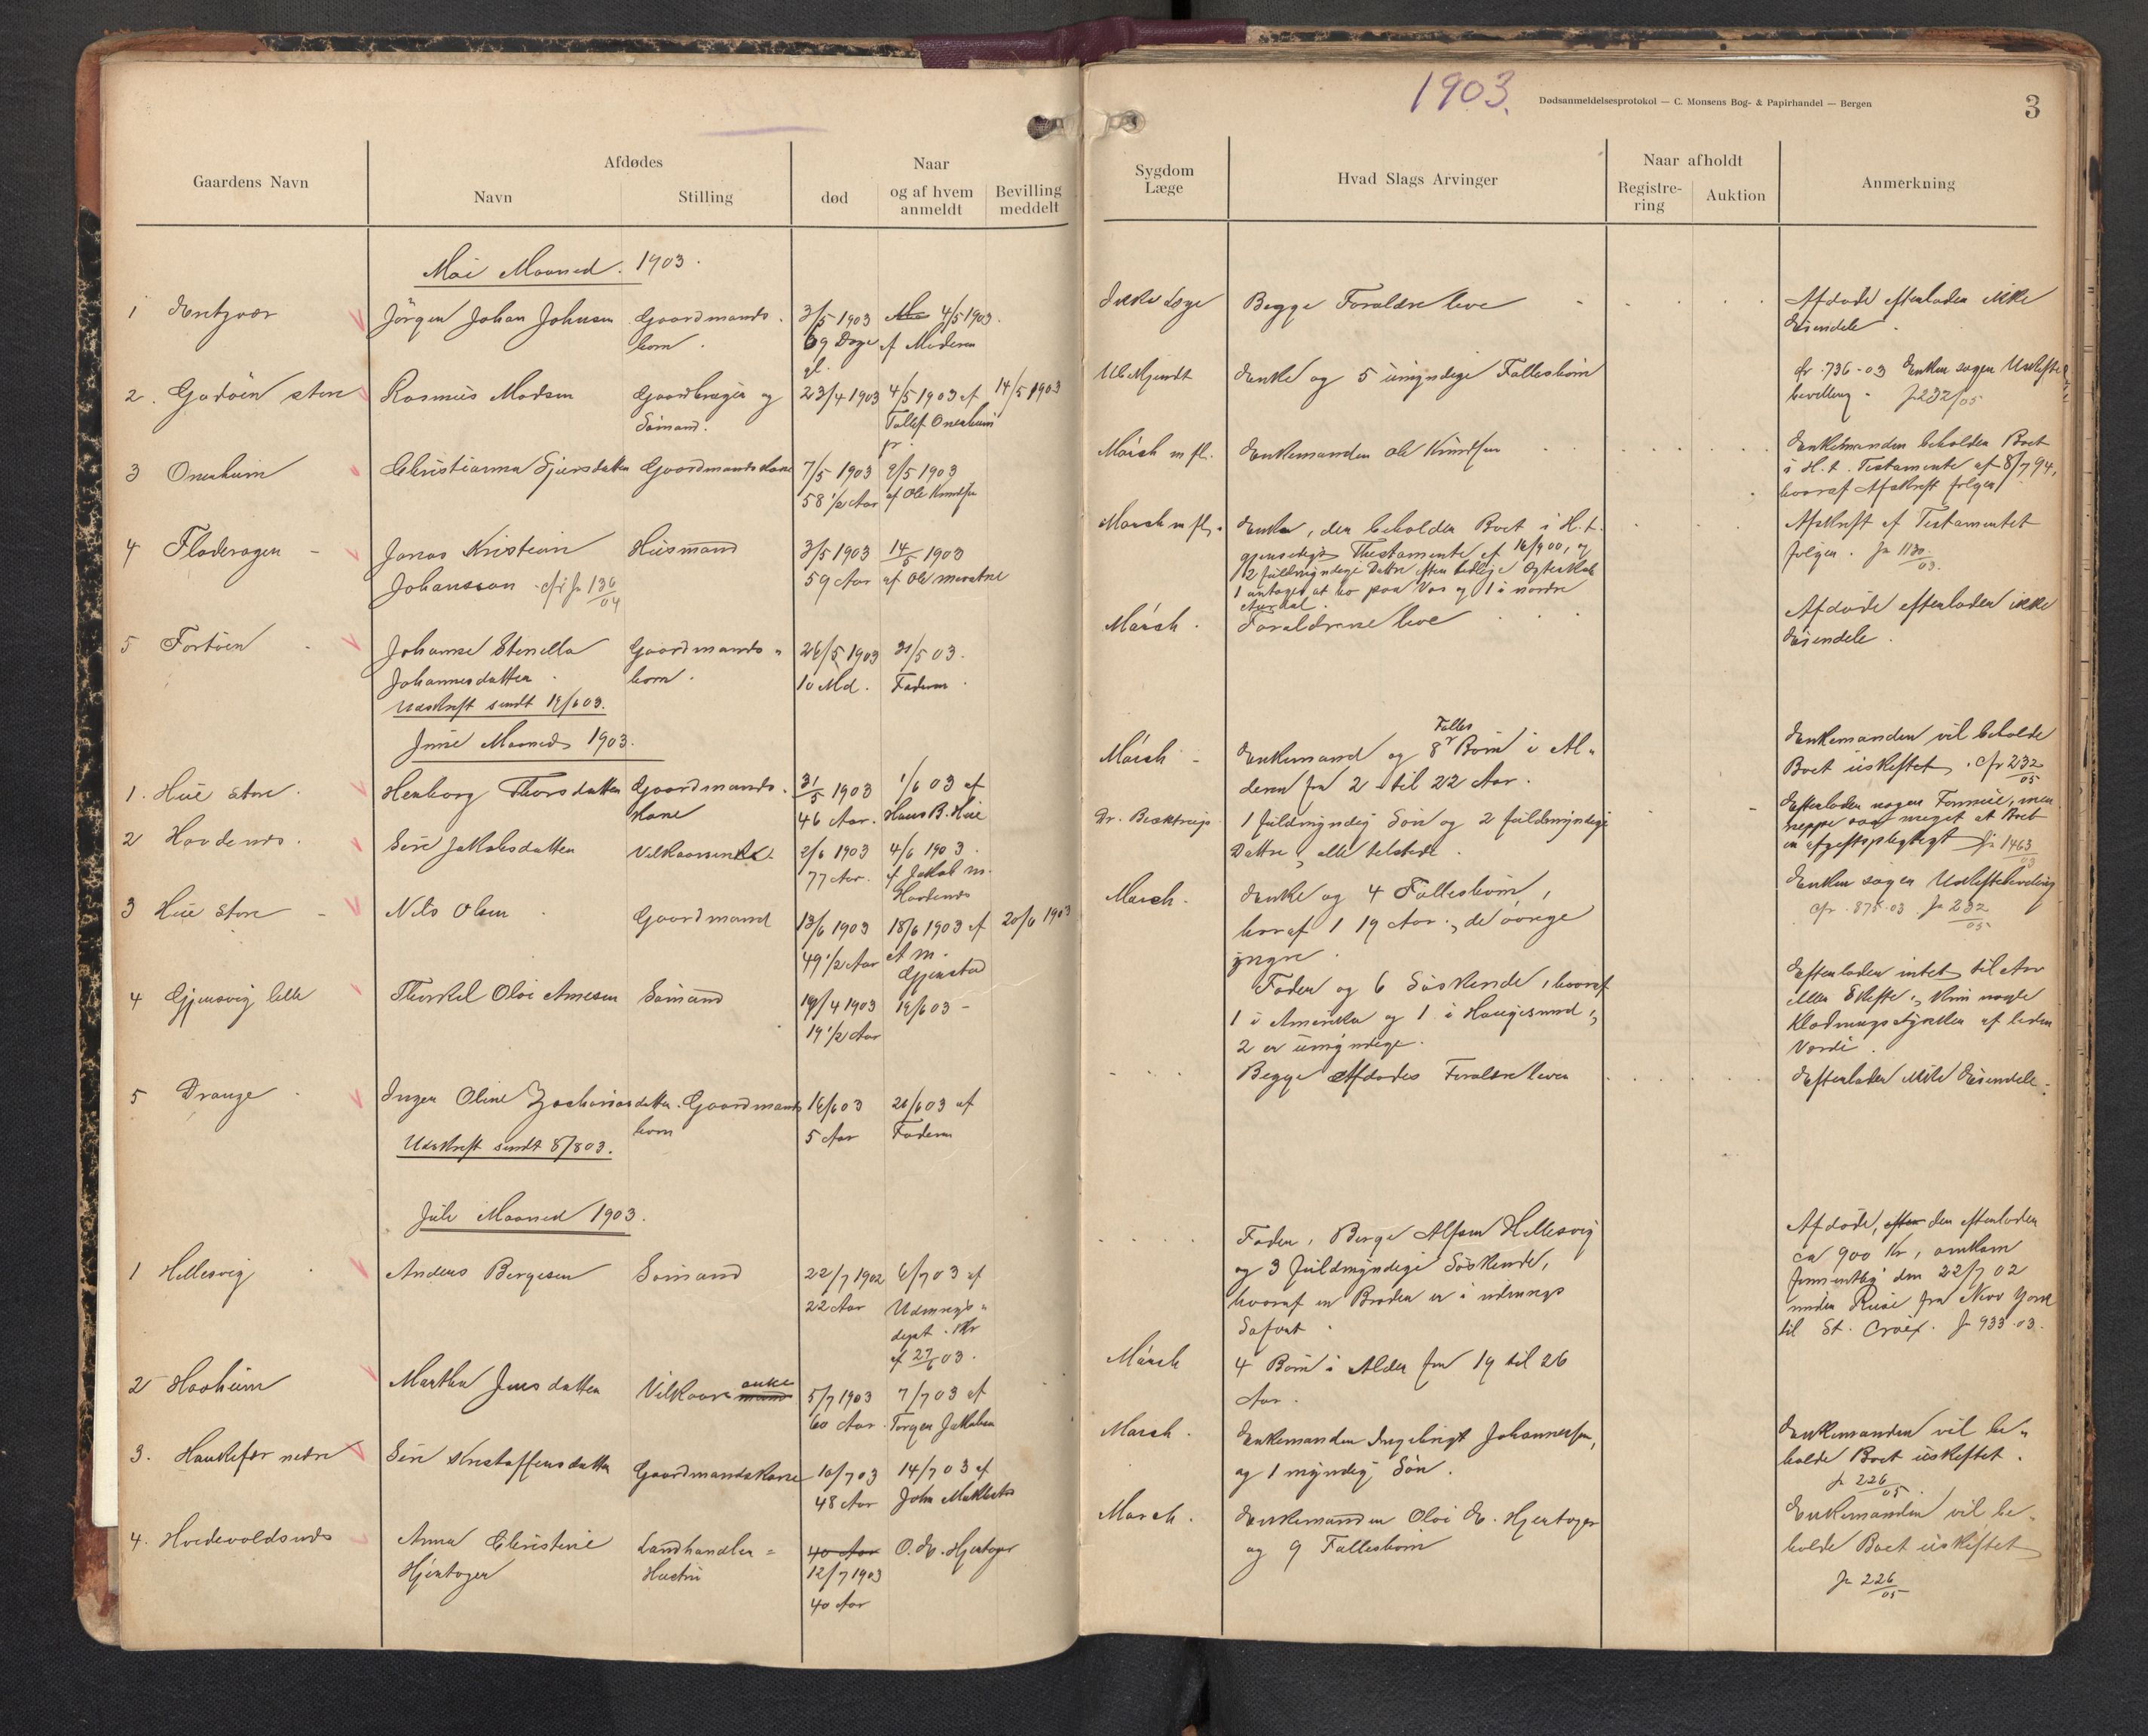 1903.
Dødsanmeldelsesprotokol — C. Monsens Bog- & Papirhandel — Bergen
3
Gaardens Navn
Afdødes
Navn
Stilling
Naar
død
og af hvem anmeldt
Bevilling meddelt
Sygdom Læge
Hvad Slags Arvinger
Naar afholdt
Registre-ring
Auktion
Anmerkning
Mai Maaned. 1903.
1 Jörgen Johan Johnsen Gaardmands-
barn. 3/5 1903 4/5 1903.
69 Dage af Moderen
gl.
Ikke Læge Begge Forældre leve
Afdøde efterlader ikke
Eiendele.
2. Gadöen store Rasmus Madsen Gaardbruger og
Sömand. 23/4 1903 4/5 1903 af 14/5 1903
Ubekjendt Enke og 5 umyndige Fællesbörn
736-03 Enken søger Uskifte
bevilling. J 232/05
3 Onarheim Christianna Sjursdatter Gaardmandskone 7/5 1903 9/5 1903
58 1/2 Aar af Ole Knudsen
Másch m fl. Enkemanden Ole Knudsen
Enkemanden beholder Boet
i H. t. Testamente af 8/7 94,
hvoraf Afskrift følger
4 Jonas Kristian Husmand 3/5 1903 14/5 1903
Johansson cfr Jr 136/04 59 Aar af Ole
Másch m fl. Enke, der beholder Boet i H. t.
gjensidigt Thestamente af 16/9 00, og
2 fuldmyndige Døttre efter tidligere Ægteskab
1 antages at bo paa Vos og 1 i nordre
Aurdal.
Afskrift af Testamentet
følger. Jr 1130/03.
5 Fortöen Johanne Stenella Gaardmands-
Johannesdatter barn. 26/5 1903 31/5 03.
10 Md. Faderen
Másch. Forældrene leve
Afdøde efterlader ikke
Eiendele.
Udskrift sendt 19/6 03.
Juni Maaned 1903.
1. Hue store. Herborg Thorsdatter Gaardmands-
kone 31/5 1903 1/6 03 af
46 Aar. Hans B. Hue
Másch Enkemand og 8 Fælles Börn i Al-
deren fra 2 til 22 Aar.
Enkemanden vil beholde
Boet uskiftet. Cfr 232/05
2 Siri Jakobsdatter 2/6 1903 4/6 1903.
77 Aar. af Jakob M.
Dr. 1 fuldmyndig Sön og 2 fuldmyndige
Døttre, alle tilstede.
Efterlader nogen Formue, men
neppe saa meget at Boet
er afgiftspligtigt Jr 1463/03
3 Hue store Nils Olsen Gaardmand 13/6 1903 18/6 1903 af 20/6 1903
49 1/2 Aar A M.
Gjerstad
Másch. Enke og 4 Fællesbörn,
hvoraf 1 19 Aar; de övrige
yngre.
Enken søger Uskiftebevilling
cfr. 875.03 Jr 232/05
4 Gjersvig lille Thorkel Olai Arnesen Sömand 19/4 1903 19/6 03 -
19 1/2 Aar
Fader og 6 Söskende, hvoraf
1 i Amerika og 1 i Haugesund;
2 er umyndige.
Efterlader intet til Arv
eller Skifte; kun nogle
Klædningsstykker af liden
Værdi.
5 Drange Inger Oline Zachariasdatter. Gaardmands
barn 16/6 03 20/6 03 af
5 Aar Faderen
Begge Afdødes Forældre lever
Efterlader ikke Eiendele.
Udskrift sendt 8/8 03.
Juli Maaned 1903.
1 Hellesvig Anders Bergesen Sömand 22/7 1902 6/7 03 af
22 Aar Udenrigs-
dept. Skr
af 27/6 03.
Fader, Berge Alfsen Hellesvig
og 3 fuldmyndige Söskende,
hvoraf en Broder er i udenrigs
Søfart.
Afdøde, efter der efterlader
ca 900 Kr, omkom
den 22/7 02
under Reise fra New York
til St. Croix. J 933.03.
2 Martha Jensdatter Vilkaarsmand enke 5/7 1903 7/7 03 af
60 Aar. Torger Jakobsen
Másch 4 Börn i Alder fra 19 til 26
Aar.
3. Siri Kristoffersdatter Gaardmandskone 10/7 03 14/7 03 af
48 Aar John
Másch. Enkemanden Ingebrigt Johannesen,
og 1 myndig Sön.
Enkemanden vil be-
holde Boet uskiftet.
Jr 226/05.
4. Anna Christine Landhandler-
Hjertager Hustru 40 Aar O. E. Hjertager
12/7 1903
40 Aar
Másch. Enkemanden Olai E. Hjertager
og 9 Fællesbörn
Enkemanden vil be-
holde Boet uskiftet
Jr 226/05